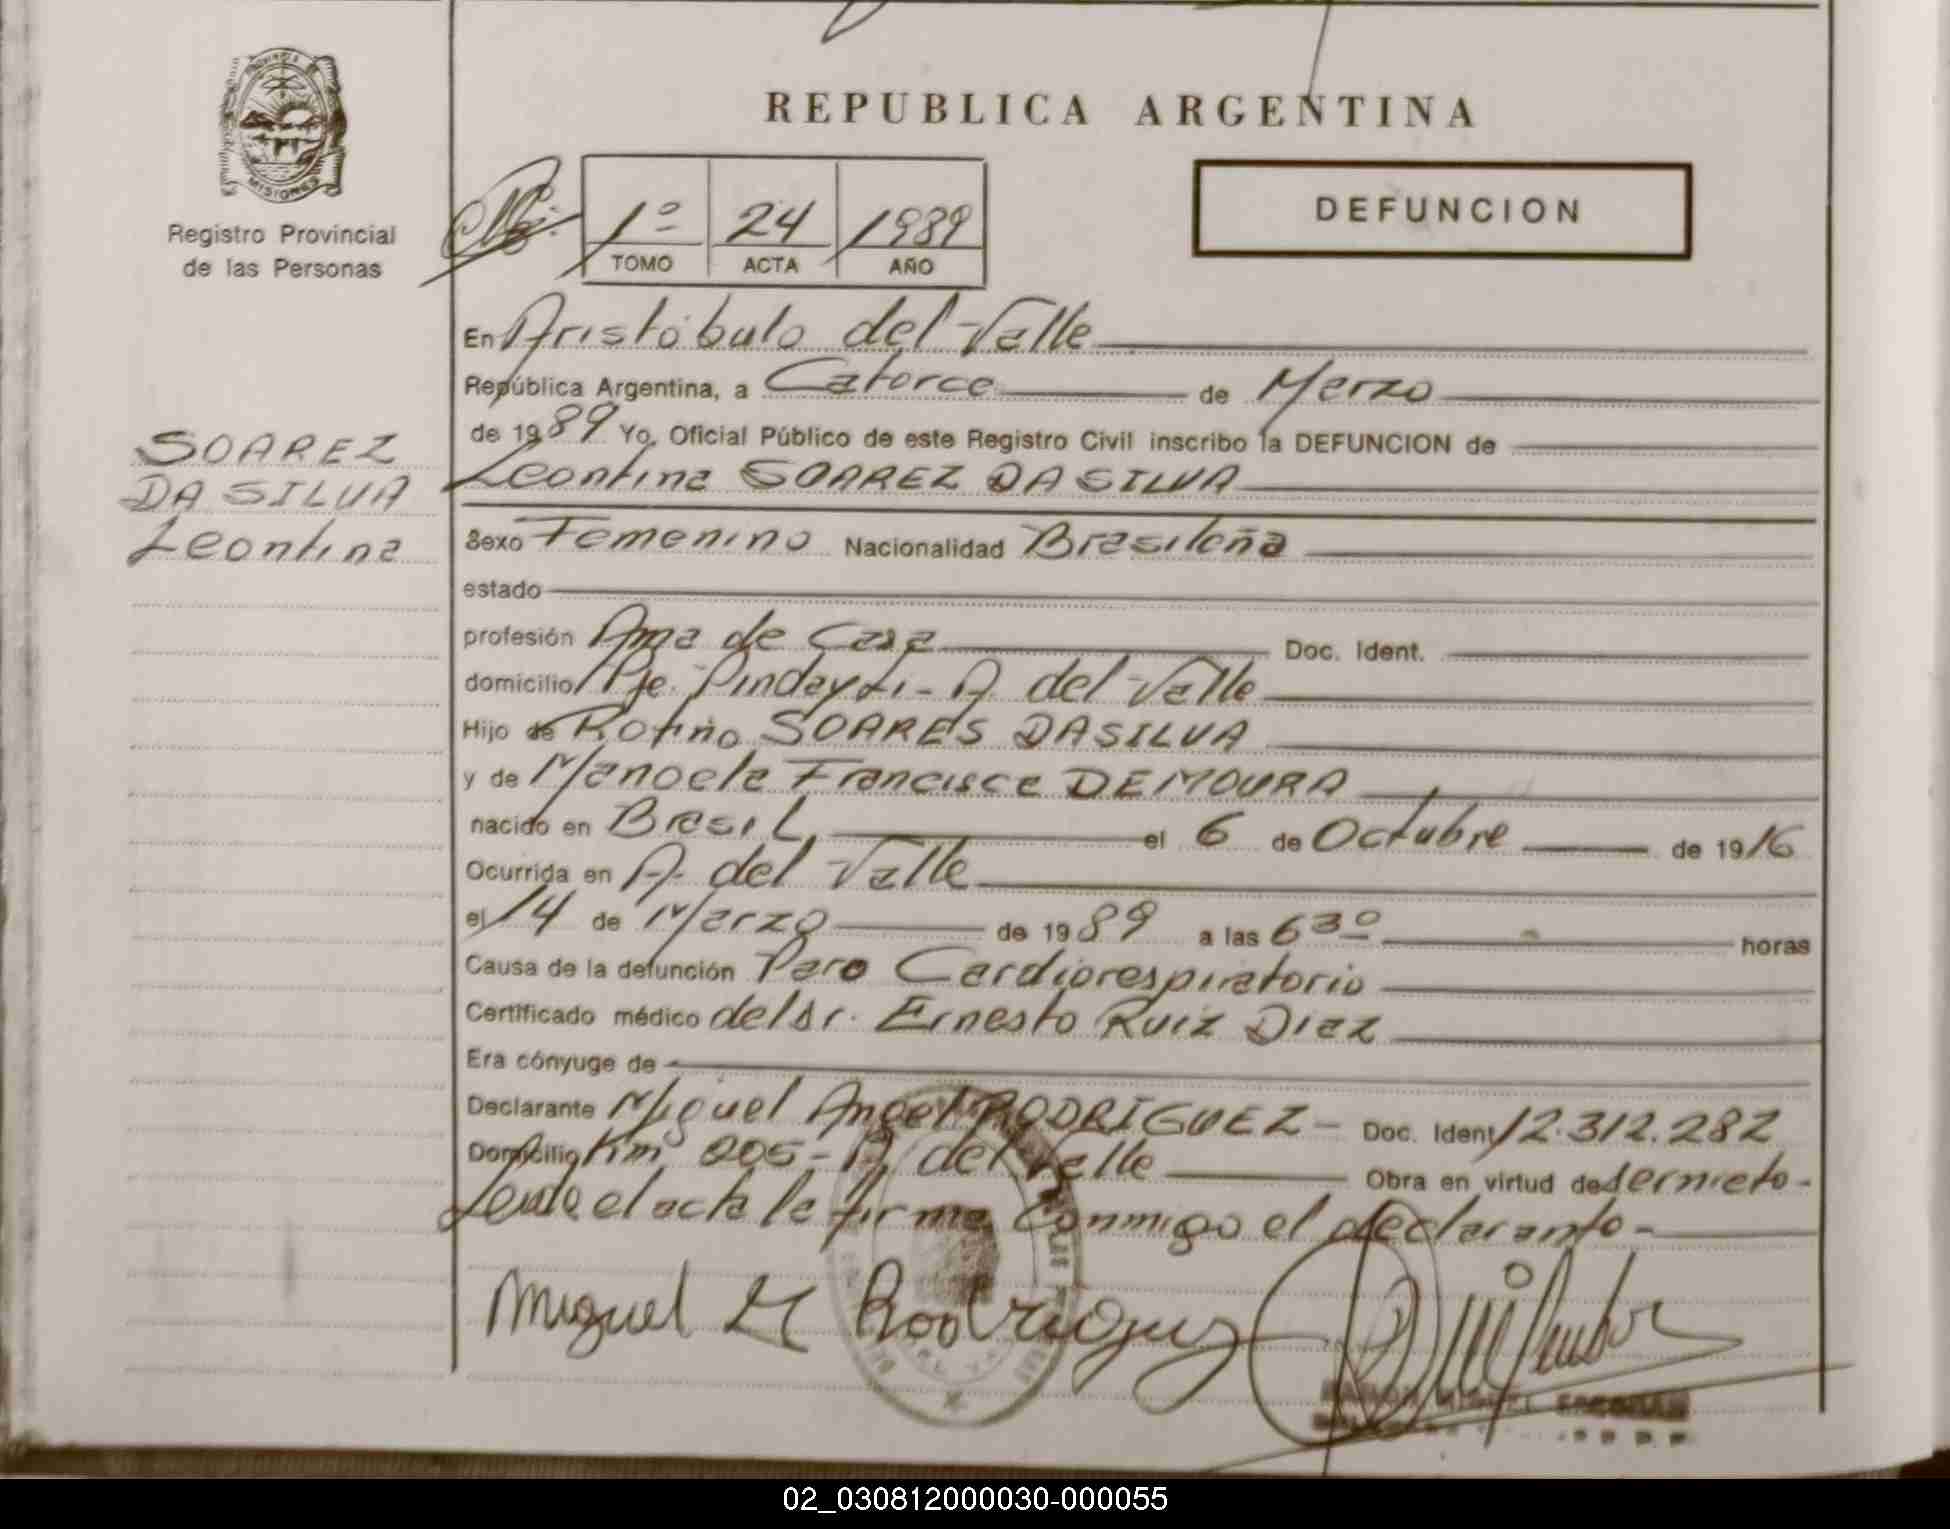 REPUBLICA ARGENTINA
PROVINCIA DE
MISIONES
Registro Provincial
de las Personas
1º 24 1989
TOMO ACTA AÑO
DEFUNCION
En Aristóbulo del Valle
República Argentina, a Catorce de Marzo
de 1989 Yo, Oficial Público de este Registro Civil inscribo la DEFUNCION de
Leontina SOAREZ DA SILVA
SOAREZ
DA SILVA
Leontina
Sexo Femenino Nacionalidad Brasileña
estado
profesión Ama de Casa Doc. Ident.
domicilio Pje. Pindayti - A. del Valle
Hijo de Rofino SOARES DASILVA
y de Manoela Francisca DE MOURA
nacido en Brasil, el 6 de Octubre de 1916
Ocurrida en A. del Valle
el 14 de Marzo de 1989 a las 6 30 horas
Causa de la defunción Paro Cardiorespiratorio
Certificado médico del dr. Ernesto Ruiz Diaz
Era cónyuge de
Declarante Miguel Angel RODRIGUEZ - Doc. Ident 12.312.282
Domicilio Km 205 - A. del Valle Obra en virtud de ser nieto -
Leida el acta la firma conmigo el declarante -
Miguel A Rodriguez
RAMON MIGUEL ESCOBAR
02_030812000030-000055